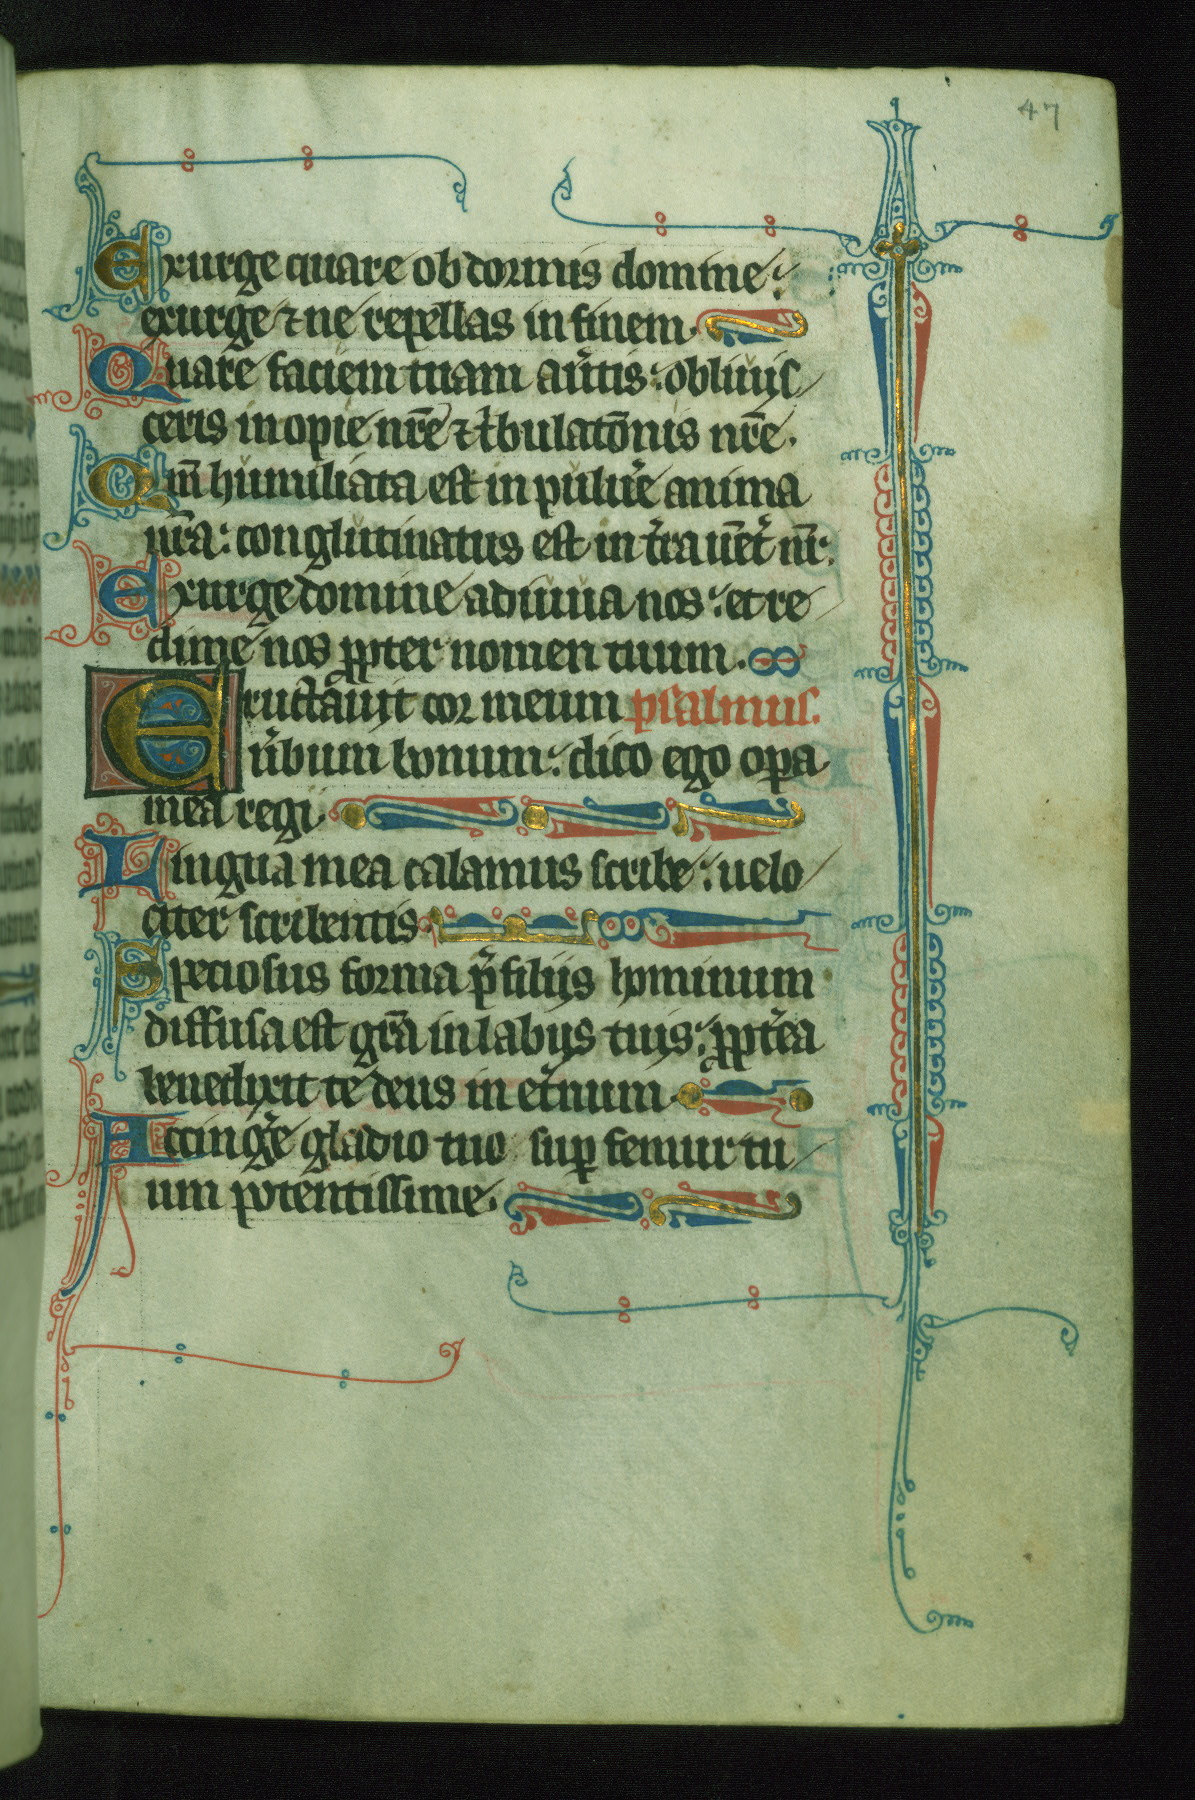 47
Exurge quare obdormis domine:
exurge ⁊ ne repellas in finem.
Quare faciem tuam au̾tis: obliuis
ceris inopie nr̄e ⁊ t̾bulatōnis nr̄e.
Qm̄ humiliata est in puluer̄e anima
nr̄a: conglutinatus est in t̾ra uēt̾ nr̄.
Exurge domine adiuua nos: et re
dime nos ꝓpter nomen tuum.
Eructauit cor meum psalmus.
u̾bum bonum: dico ego oꝑa
mea regi.
Lingua mea calamus scribe: uelo
citer scribentis.
Speciosus forma p̄ filijs hominum
diffusa est gr̄a in labijs tuis: ꝓpt̾ea
benedixit te deus in et̾num.
Accing̾e gladio tuo suꝑ femur tu
um potentissime.